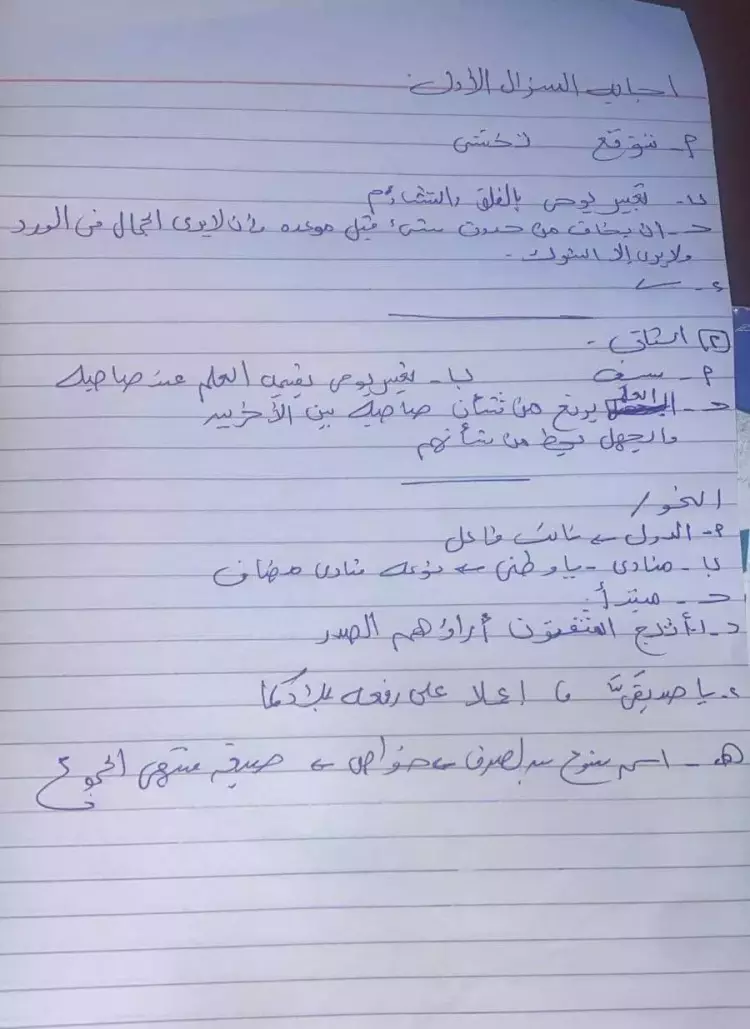 اجابه السؤال الأول:
م- نتوقع نخشى
ب- تعبير يوحى بالقلق والتشاؤم
حـ- ان يخاف من حدوث شئ قبل موعده وأن لا يرى الجمال فى الورد
ولا يرى إلا الشوك -
ء-
(٢) الثانى -
م- ب- تعبير يوحى بقيمه العلم عند صاحبه
حـ- العلم يرفع من شأن صاحبه بين الأخرين
والجهل يحط من شأنهم
النحو /
م- الدول ← نائب فاعل
ب- منادى - يا وطنى ← نوعه منادى مضاف
حـ- مبتدأ
د- ١- أثلج المتفوقون أراؤهم الصدر
٢- يا صديقىَّ اعملا على رفعه بلادكما
هـ- اسم ممنوع من الصرف ← ← صيغه منتهى الجموع